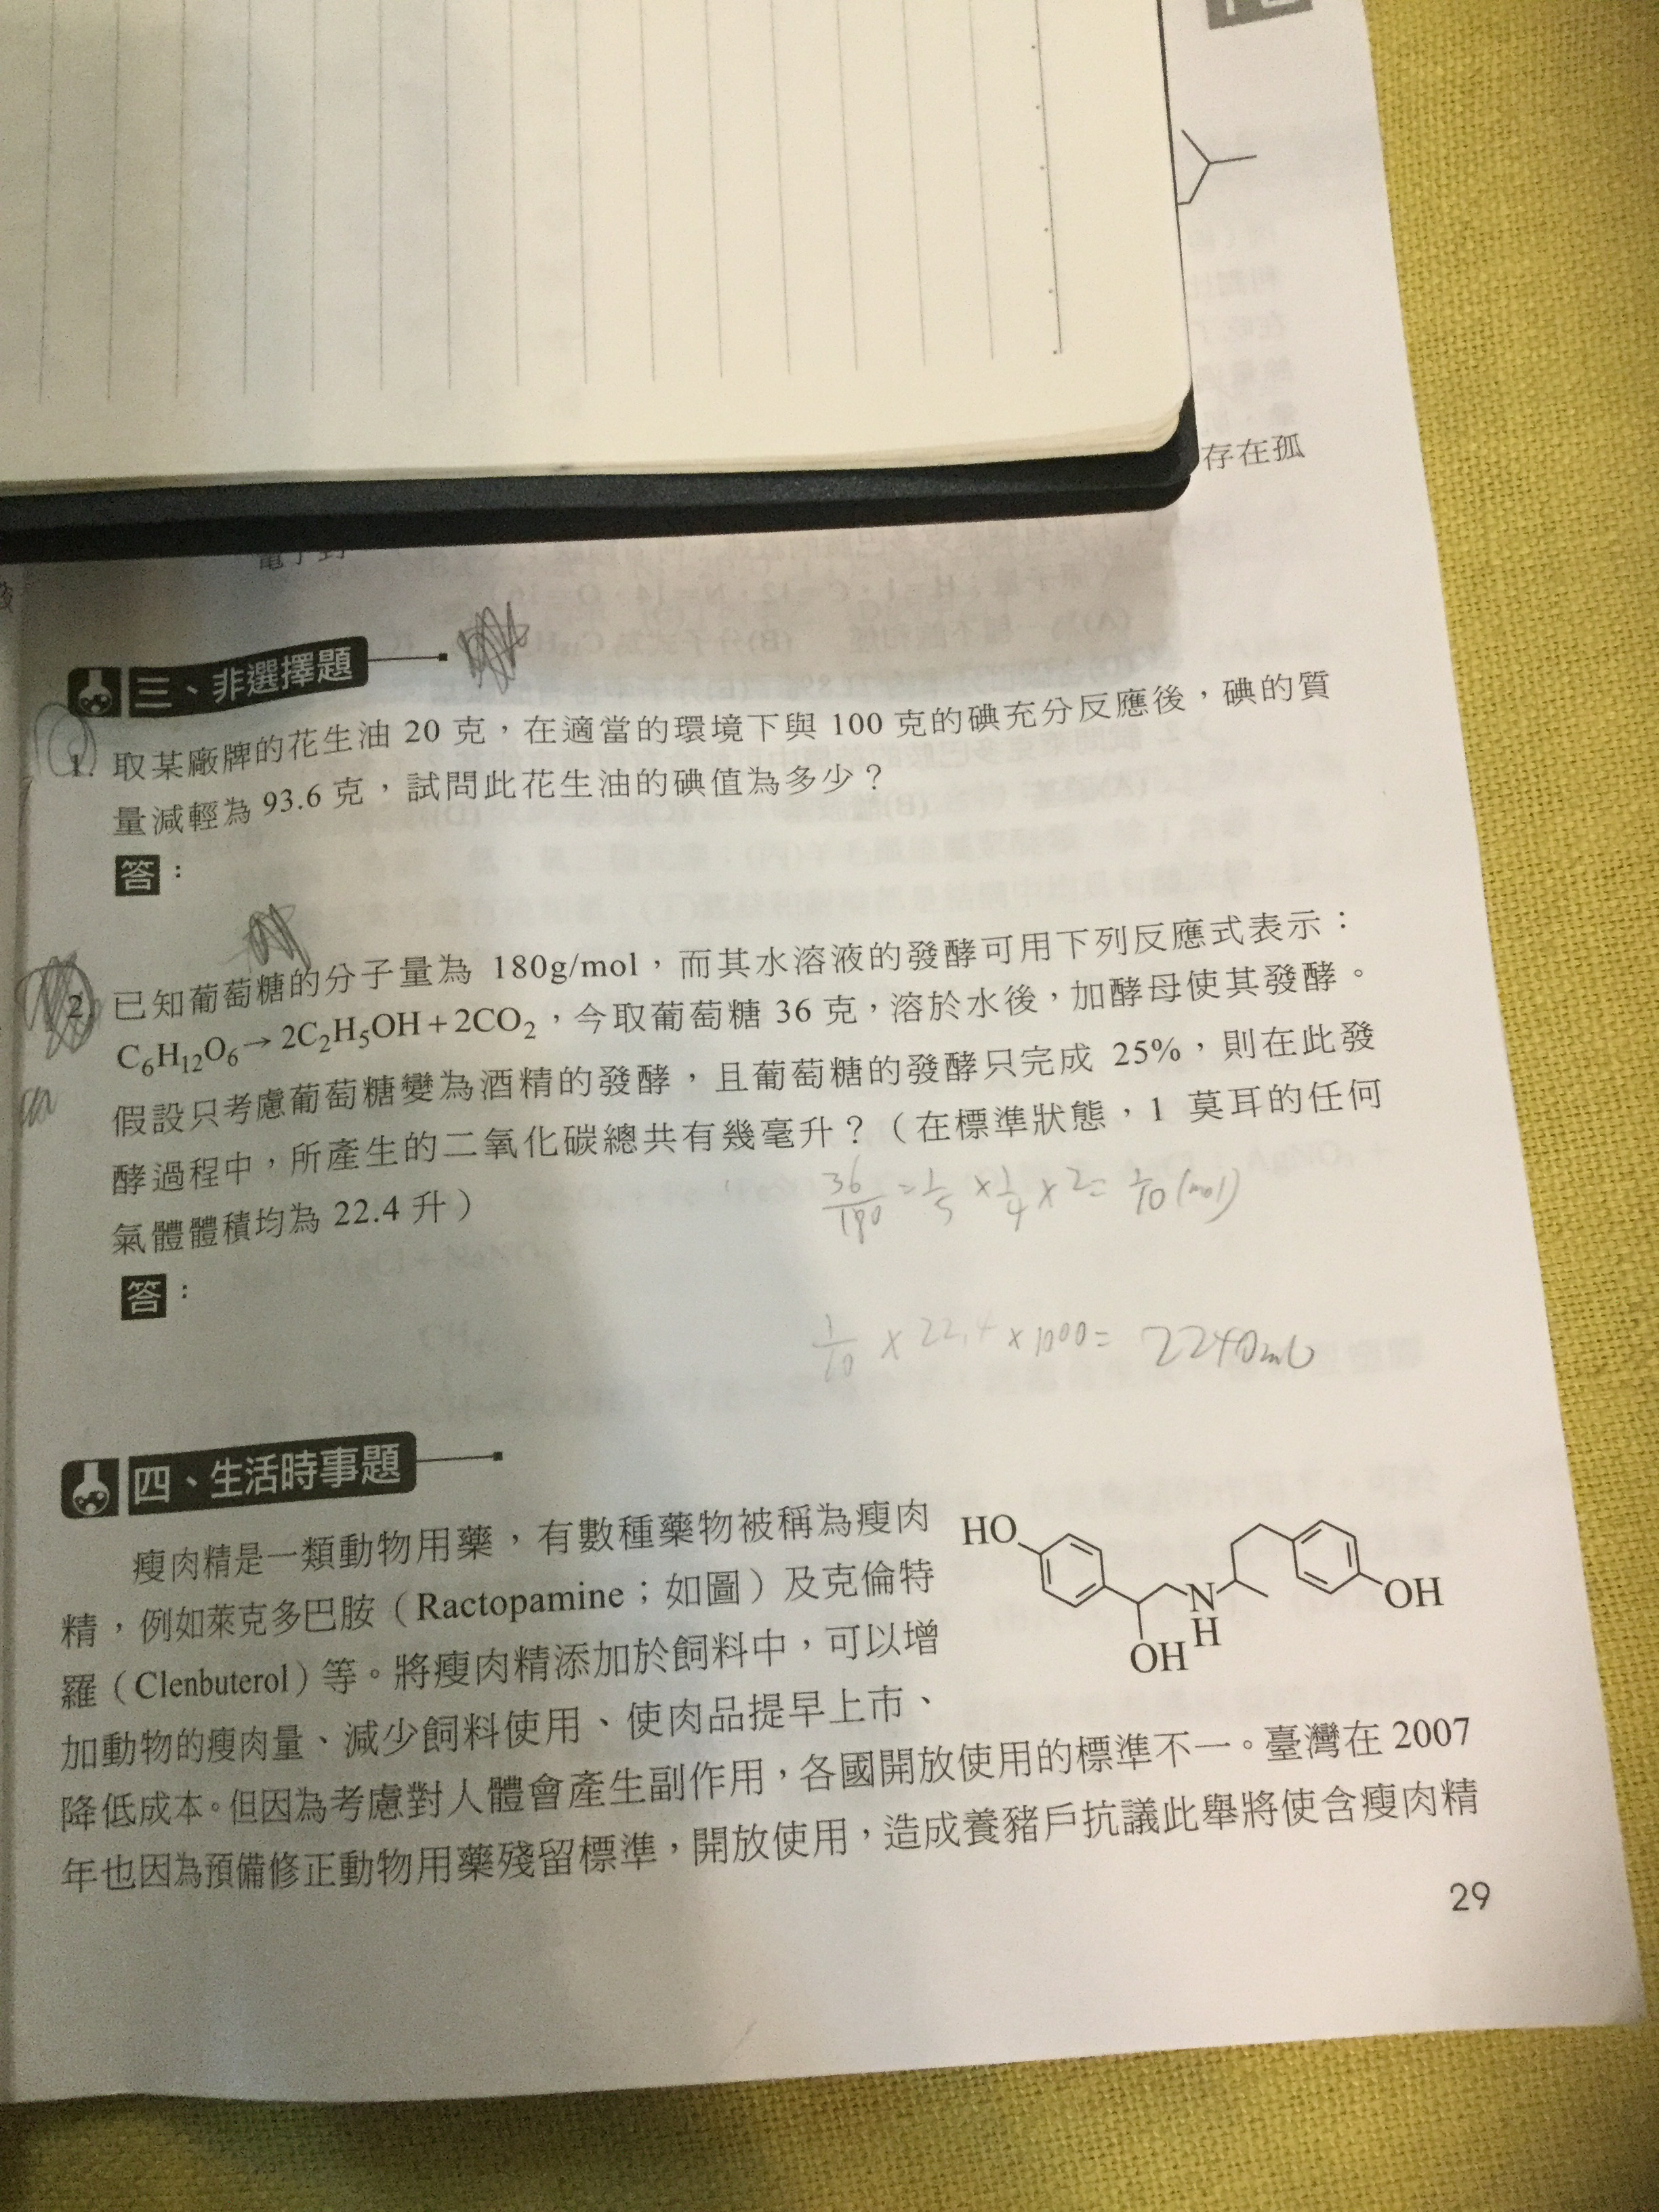 存在孤
電子對
三、非選擇題
1. 取某廠牌的花生油 20 克，在適當的環境下與 100 克的碘充分反應後，碘的質
量減輕為 93.6 克，試問此花生油的碘值為多少？
答：
2. 已知葡萄糖的分子量為 180g/mol，而其水溶液的發酵可用下列反應式表示：
C₆H₁₂O₆→2C₂H₅OH+2CO₂，今取葡萄糖 36 克，溶於水後，加酵母使其發酵。
假設只考慮葡萄糖變為酒精的發酵，且葡萄糖的發酵只完成 25%，則在此發
酵過程中，所產生的二氧化碳總共有幾毫升？（在標準狀態，1 莫耳的任何
氣體體積均為 22.4 升）
36/180 = 1/5 × 1/4 × 2 = 1/10 (mol)
答：
1/10 × 22.4 × 1000 = 2240mL
四、生活時事題
瘦肉精是一類動物用藥，有數種藥物被稱為瘦肉
精，例如萊克多巴胺（Ractopamine；如圖）及克倫特
羅（Clenbuterol）等。將瘦肉精添加於飼料中，可以增
加動物的瘦肉量、減少飼料使用、使肉品提早上市、
降低成本。但因為考慮對人體會產生副作用，各國開放使用的標準不一。臺灣在 2007
年也因為預備修正動物用藥殘留標準，開放使用，造成養豬戶抗議此舉將使含瘦肉精
HO
N
H
OH
OH
29